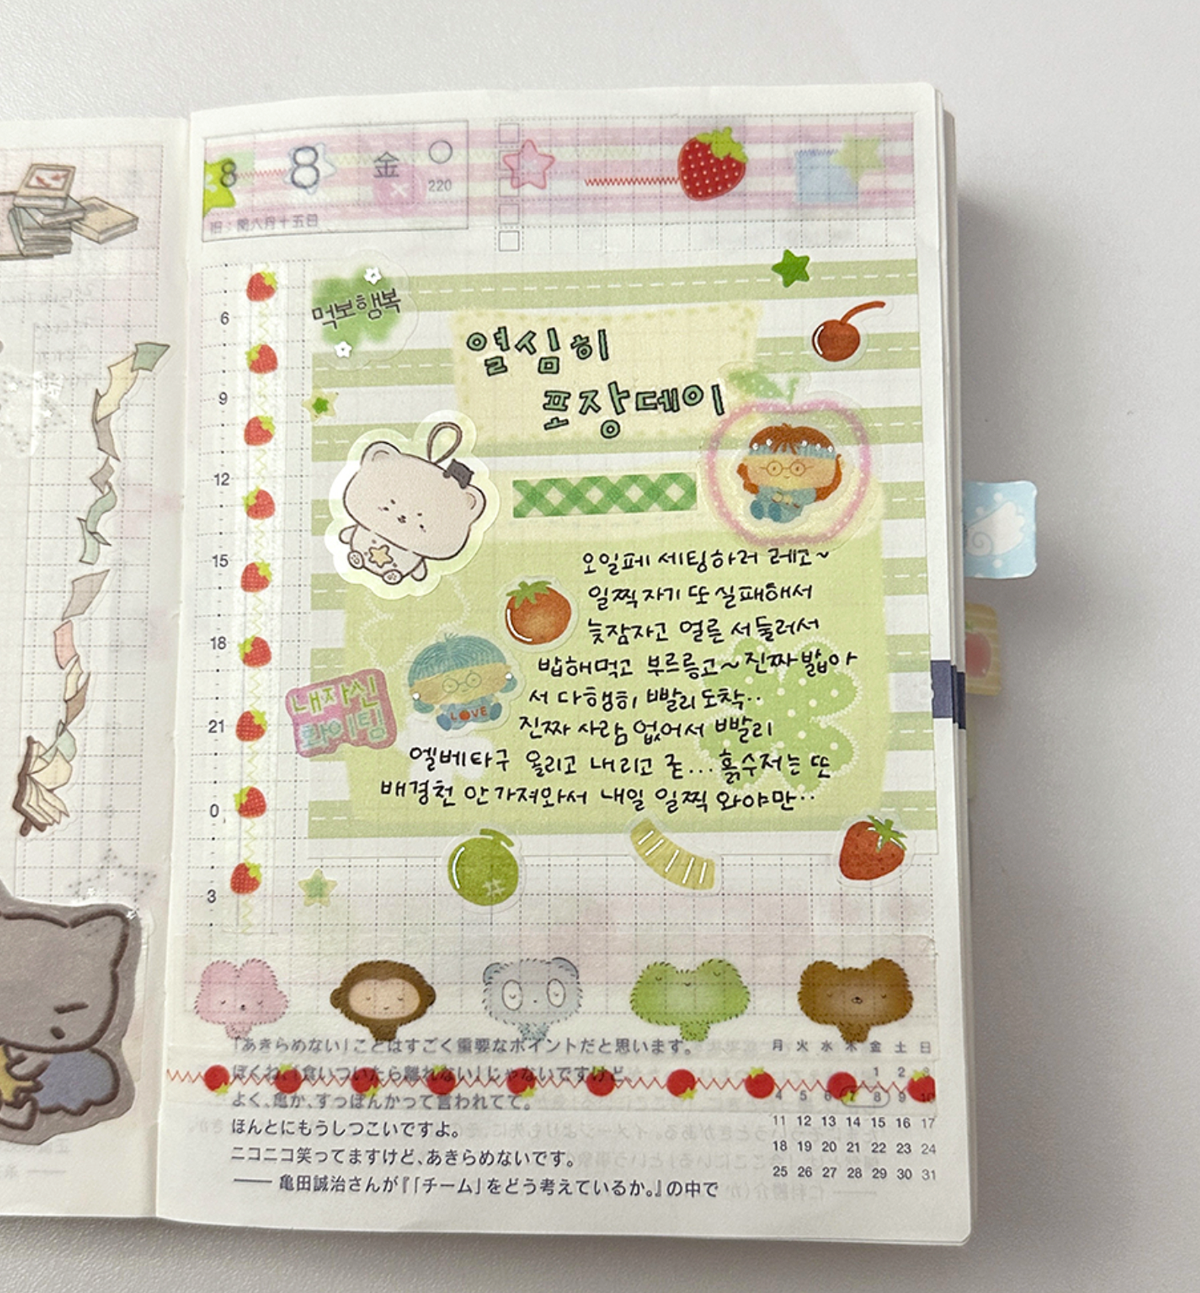 8 8 金 ○
220
旧:閏六月十五日
먹보행복
열심히
포장데이
오일페 세팅하러 레고~
일찍자기 또 실패해서
늦잠자고 얼른 서둘러서
밥해먹고 부르릉고~진짜 밟아
서 다행히 빨리도착..
진짜 사람 없어서 빨리
엘베타구 올리고 내리고 촌...흙수저는 또
배경천 안가져와서 내일 일찍 와야만..
내자신
화이팅
LOVE
6
9
12
15
18
21
0
3
「あきらめない」ことはすごく重要なポイントだと思います。
ぼくね、「食いついたら離れない」じゃないですけど、
よく、亀か、すっぽんかって言われてて。
ほんとにもうしつこいですよ。
ニコニコ笑ってますけど、あきらめないです。
── 亀田誠治さんが『「チーム」をどう考えているか。』の中で
月 火 水 木 金 土 日
1 2 3
4 5 6 7 8 9 10
11 12 13 14 15 16 17
18 19 20 21 22 23 24
25 26 27 28 29 30 31